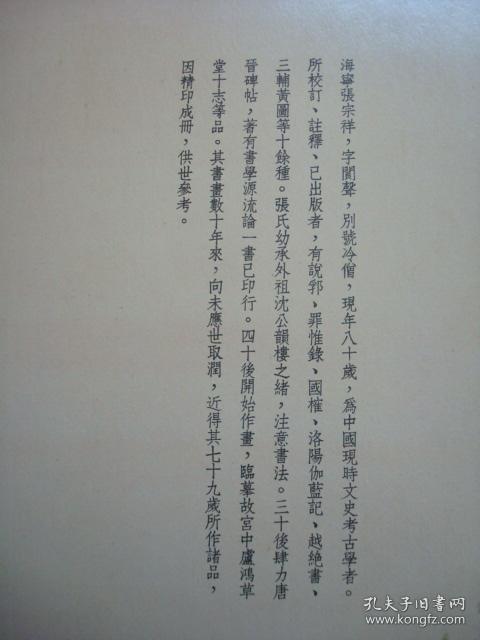 海寧張宗祥，字閬聲，別號冷僧，現年八十歲，爲中國現時文史考古學者。
所校訂、註釋、已出版者，有說郛、罪惟錄、國榷、洛陽伽藍記、越絕書、
三輔黃圖等十餘種。張氏幼承外祖沈公韻樓之緒，注意書法。三十後肆力唐
晉碑帖，著有書學源流論一書已印行。四十後開始作畫，臨摹故宮中盧鴻草
堂十志等品。其書畫數十年來，向未應世取潤，近得其七十九歲所作諸品，
因精印成冊，供世參考。
孔夫子旧书网
www.kongfz.com